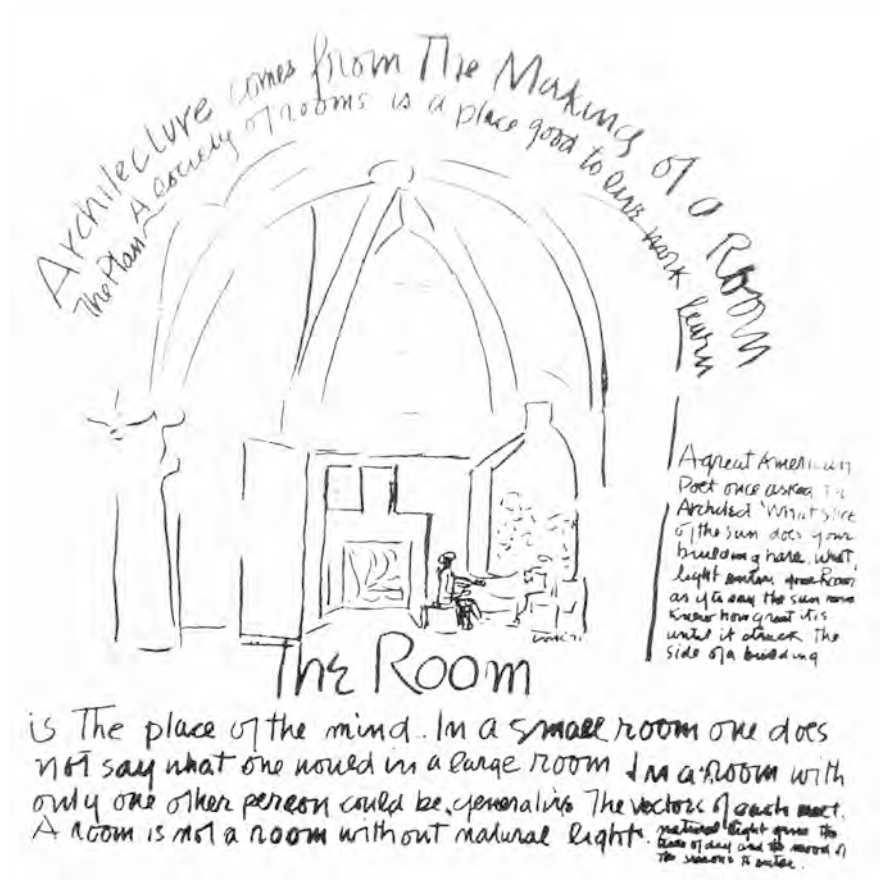 Architecture comes from The Making of a Room
The Plan A society of rooms is a place good to live work learn
A great American
Poet once asked the
Architect 'What slice
of the sun does your
building have. what
light enters your Room
as if to say the sun never
knew how great it is
until it struck the
side of a building
The Room
is The place of the mind. In a small room one does
not say what one would in a large room In a room with
only one other person could be generative The vectors of each meet.
A room is not a room without natural light.
natural light gives the
time of day and the mood of
the seasons to enter.